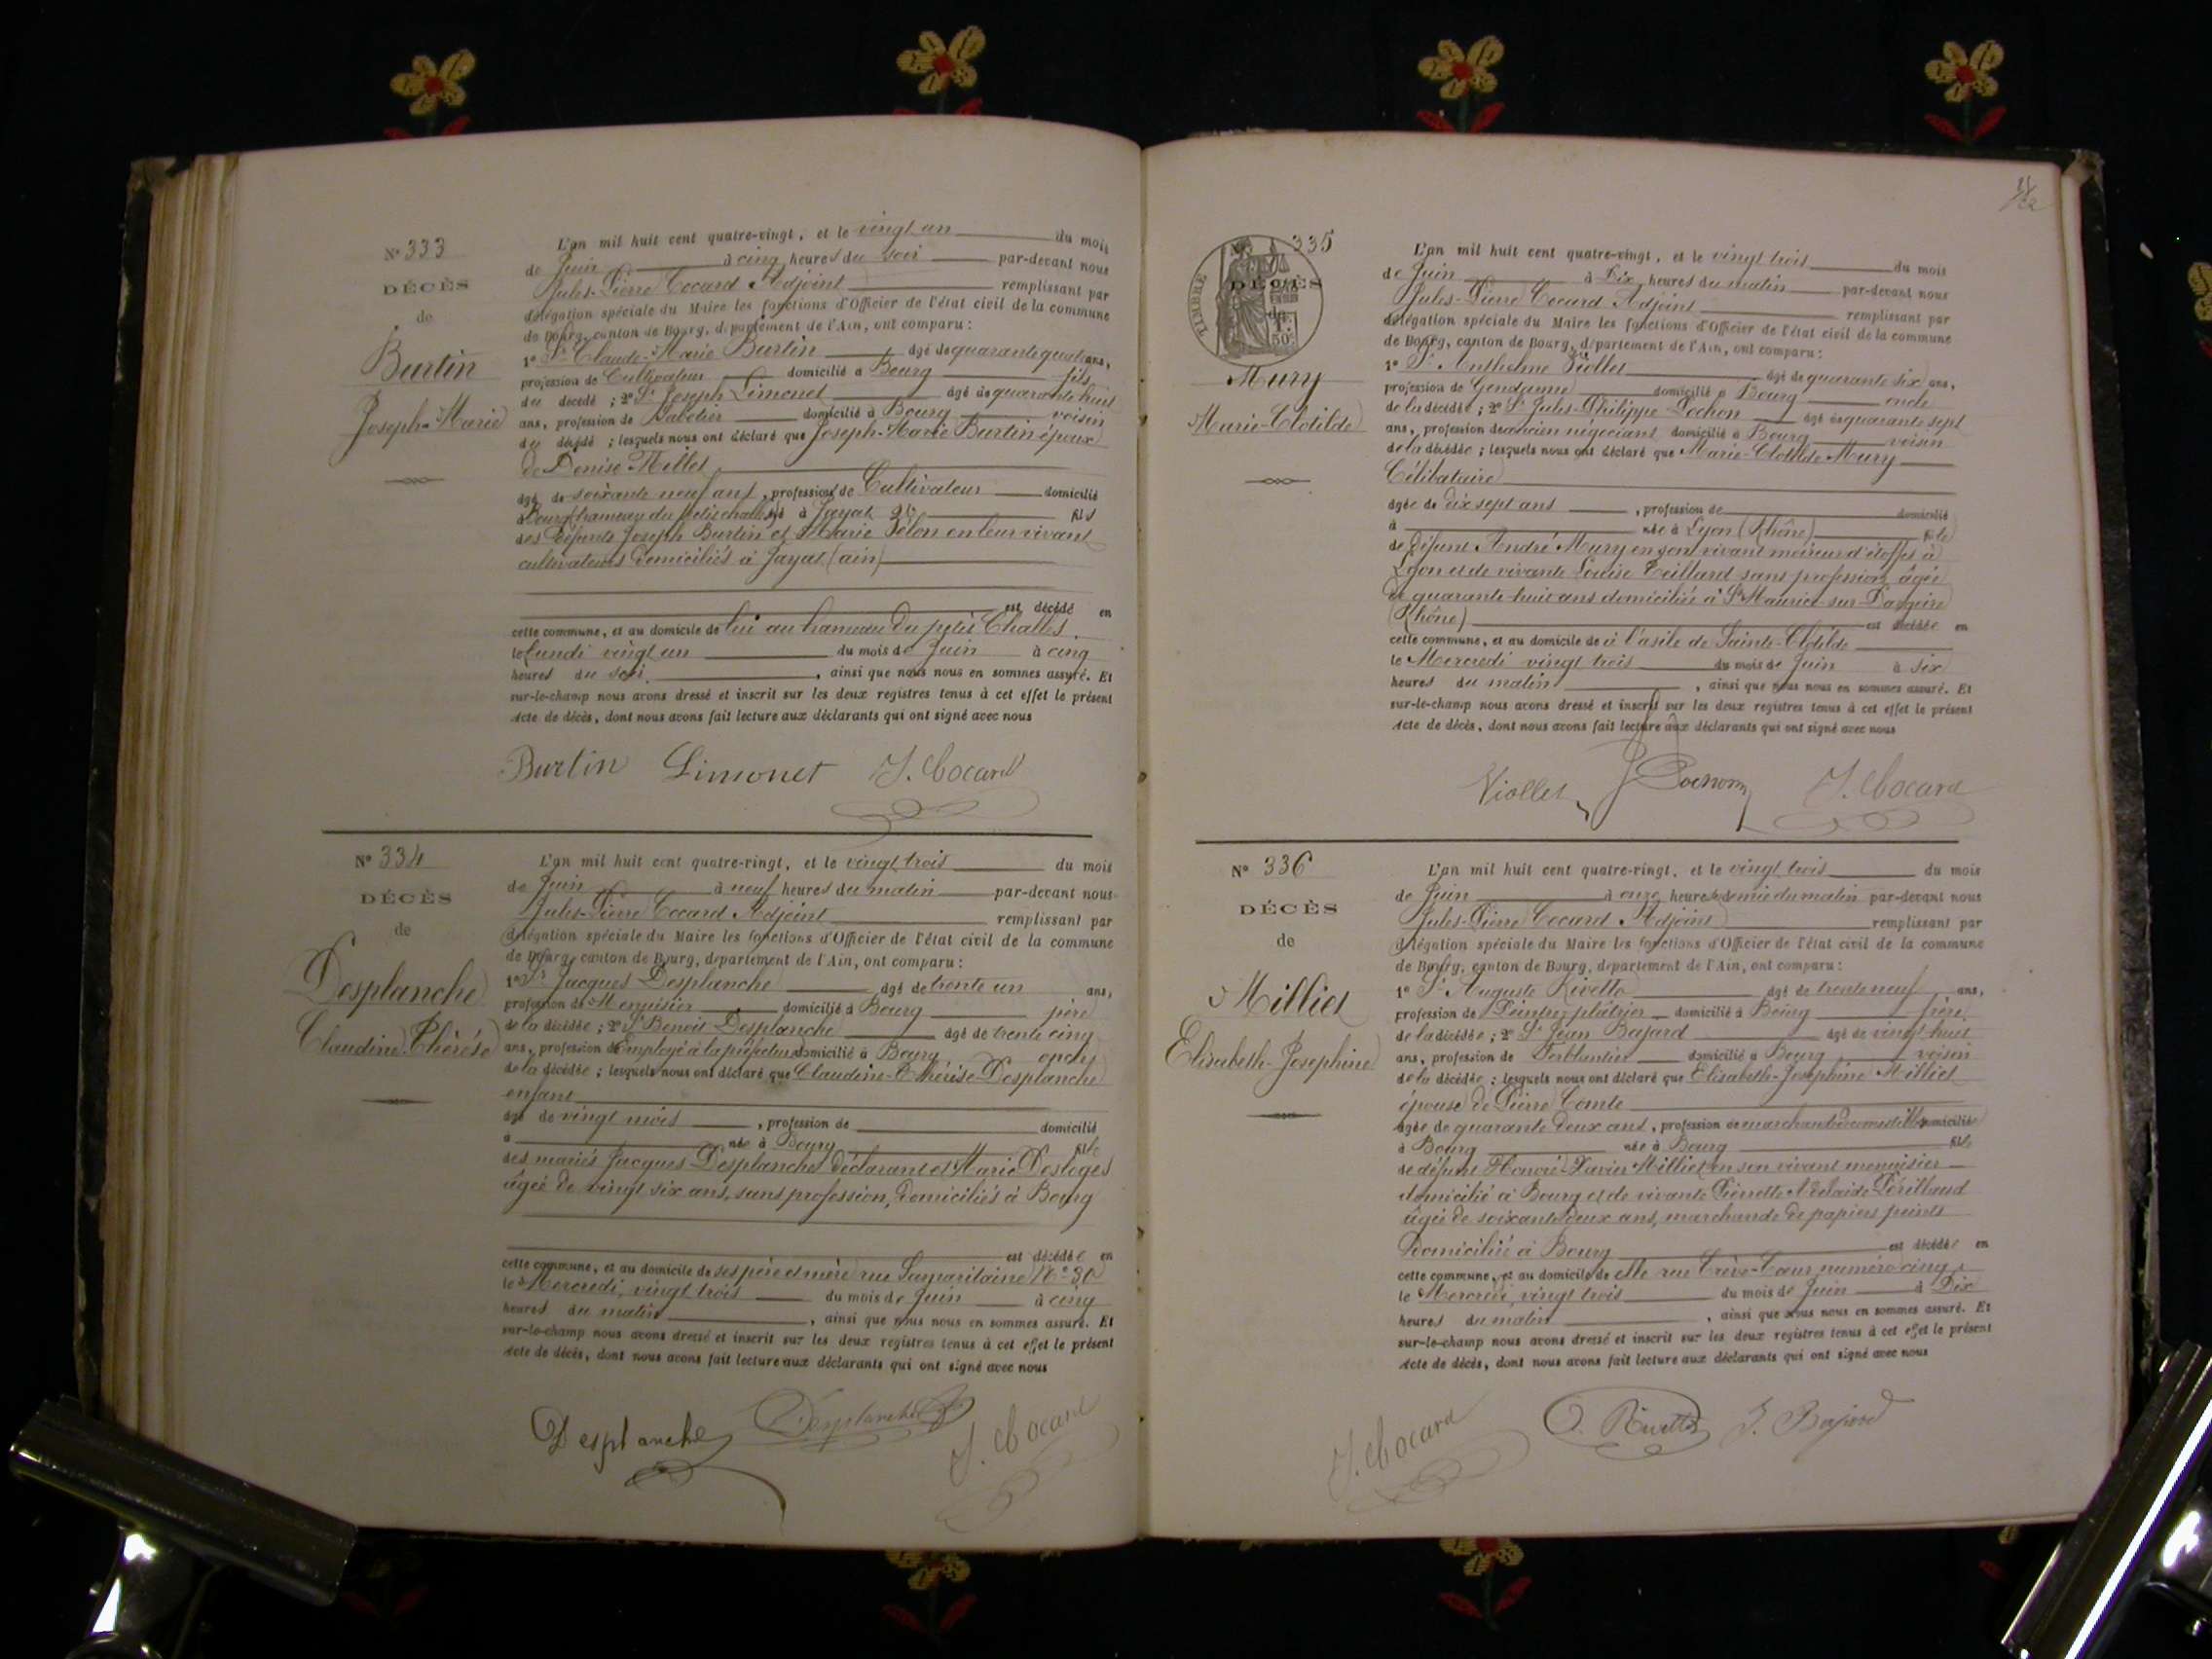 N° 333
DÉCÈS
de
Burtin
Joseph-Marie
L'an mil huit cent quatre-vingt, et le vingt un du mois
de Juin à cinq heures du soir par-devant nous
Jules-Pierre Cocard Adjoint remplissant par
délégation spéciale du Maire les fonctions d'Officier de l'état civil de la commune
de Bourg, canton de Bourg, département de l'Ain, ont comparu :
1° Sr Claude-Marie Burtin âgé de quarante quatre ans,
profession de Cultivateur domicilié à Bourg fils
du décédé ; 2° Sr Joseph Limonet âgé de quarante huit
ans, profession de Sabotier domicilié à Bourg voisin
du décédé ; lesquels nous ont déclaré que Joseph-Marie Burtin époux
de Denise Millet
âgé de soixante neuf ans, profession de Cultivateur domicilié
à Bourg (hameau du petit challes) né à Jayat fils
des défunts Joseph Burtin et Marie Pélon en leur vivant
cultivateurs domiciliés à Jayat (ain)
est décédé en
cette commune, et au domicile de lui au hameau du petit Challes.
le lundi vingt un du mois de Juin à cinq
heures du soir, ainsi que nous nous en sommes assuré. Et
sur-le-champ nous avons dressé et inscrit sur les deux registres tenus à cet effet le présent
Acte de décès, dont nous avons fait lecture aux déclarants qui ont signé avec nous
Burtin Limonet J. Cocard
N° 334
DÉCÈS
de
Desplanche
Claudine Thérèse
L'an mil huit cent quatre-vingt, et le vingt trois du mois
de Juin à neuf heures du matin par-devant nous
Jules-Pierre Cocard Adjoint remplissant par
délégation spéciale du Maire les fonctions d'Officier de l'état civil de la commune
de Bourg, canton de Bourg, département de l'Ain, ont comparu :
1° Sr Jacques Desplanche âgé de trente un ans,
profession de Menuisier domicilié à Bourg père
de la décédée ; 2° Sr Benoit Desplanche âgé de trente cinq
ans, profession d'Employé à la préfecture domicilié à Bourg, oncle
de la décédée ; lesquels nous ont déclaré que Claudine-Thérèse Desplanche
enfant
âgé de vingt mois, profession de domicilié
à née à Bourg fille
des mariés Jacques Desplanche déclarant et Marie Desloges
âgée de vingt six ans, sans profession, domiciliés à Bourg
est décédée en
cette commune, et au domicile de ses père et mère rue Samaritaine N° 30
le Mercredi, vingt trois du mois de Juin à cinq
heures du matin, ainsi que nous nous en sommes assuré. Et
sur-le-champ nous avons dressé et inscrit sur les deux registres tenus à cet effet le présent
Acte de décès, dont nous avons fait lecture aux déclarants qui ont signé avec nous
Desplanche Desplanche J. Cocard
TIMBRE
N° 335
DÉCÈS
de
1F
50c
Mury
Marie-Clotilde
L'an mil huit cent quatre-vingt, et le vingt trois du mois
de Juin à Dix heures du matin par-devant nous
Jules-Pierre Cocard Adjoint remplissant par
délégation spéciale du Maire les fonctions d'Officier de l'état civil de la commune
de Bourg, canton de Bourg, département de l'Ain, ont comparu :
1° Sr Anthelme Viollet âgé de quarante six ans,
profession de Gendarme domicilié à Bourg oncle
de la décédée ; 2° Sr Jules-Philippe Pochon âgé de quarante sept
ans, profession de ancien négociant domicilié à Bourg voisin
de la décédée ; lesquels nous ont déclaré que Marie-Clotilde Mury
Célibataire
âgée de dix sept ans, profession de domicilié
à née à Lyon (Rhône) fille
de défunt André Mury en son vivant moireur d'étoffes à
Lyon et de vivante Louise Teillard sans profession, âgée
de quarante-huit ans domiciliée à St Maurice-sur-Dargoire
(Rhône) est décédée en
cette commune, et au domicile de à l'asile de Sainte-Clotilde
le Mercredi vingt trois du mois de Juin à six
heures du matin, ainsi que nous nous en sommes assuré. Et
sur-le-champ nous avons dressé et inscrit sur les deux registres tenus à cet effet le présent
Acte de décès, dont nous avons fait lecture aux déclarants qui ont signé avec nous
Viollet J Pochon J. Cocard
N° 336
DÉCÈS
de
Milliet
Elisabeth-Josephine
L'an mil huit cent quatre-vingt, et le vingt trois du mois
de Juin à onze heures et demie du matin par-devant nous
Jules-Pierre Cocard Adjoint remplissant par
délégation spéciale du Maire les fonctions d'Officier de l'état civil de la commune
de Bourg, canton de Bourg, département de l'Ain, ont comparu :
1° Sr Auguste Rivetto âgé de trente neuf ans,
profession de Peintre plâtrier domicilié à Bourg frère
de la décédée ; 2° Sr Jean Bajard âgé de vingt huit
ans, profession de Ferblantier domicilié à Bourg voisin
de la décédée ; lesquels nous ont déclaré que Elisabeth-Joséphine Milliet
épouse de Pierre Comte
âgée de quarante deux ans, profession de marchande de comestibles domiciliée
à Bourg née à Bourg fille
de défunt Honoré Xavier Milliet en son vivant menuisier
domicilié à Bourg et de vivante Pierrette Adelaide Périllaud
âgée de soixante deux ans, marchande de papiers peints
Domiciliée à Bourg est décédée en
cette commune, et au domicile de elle rue Crève-Coeur numéro cinq,
le Mercredi, vingt trois du mois de Juin à Dix
heures du matin, ainsi que nous nous en sommes assuré. Et
sur-le-champ nous avons dressé et inscrit sur les deux registres tenus à cet effet le présent
Acte de décès, dont nous avons fait lecture aux déclarants qui ont signé avec nous
J. Cocard Rivetto J. Bajard